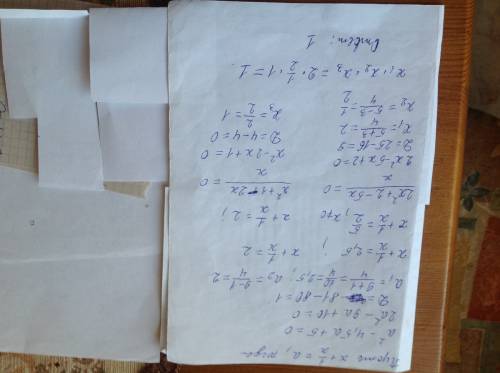 Пусть x + 1/x = a, тогда
a² - 4,5a + 5 = 0
2a² - 9a + 10 = 0
D = 81 - 80 = 1
a₁ = (9+1)/4 = 10/4 = 2,5; a₂ = (9-1)/4 = 2
x + 1/x = 2,5; x + 1/x = 2
x + 1/x = 5/2, x≠0 x + 1/x = 2;
(2x² + 2 - 5x)/x = 0 (x² + 1 - 2x)/x = 0
2x² - 5x + 2 = 0 x² - 2x + 1 = 0
D = 25 - 16 = 9 D = 4 - 4 = 0
x₁ = (5+3)/4 = 2 x₃ = 2/2 = 1
x₂ = (5-3)/4 = 1/2
x₁ · x₂ · x₃ = 2 · 1/2 · 1 = 1.
Ответ: 1